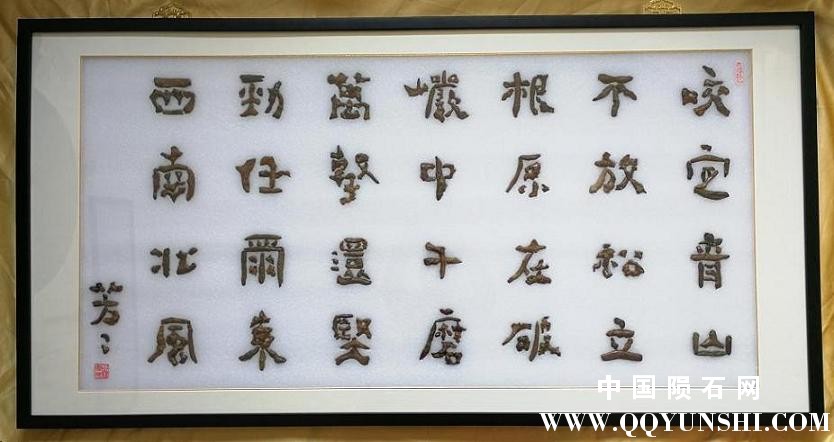 咬定青山
不放松立
根原在破
巖中千磨
萬擊還堅
勁任爾東
西南北風
芳
中国陨石网
WWW.QQYUNSHI.COM